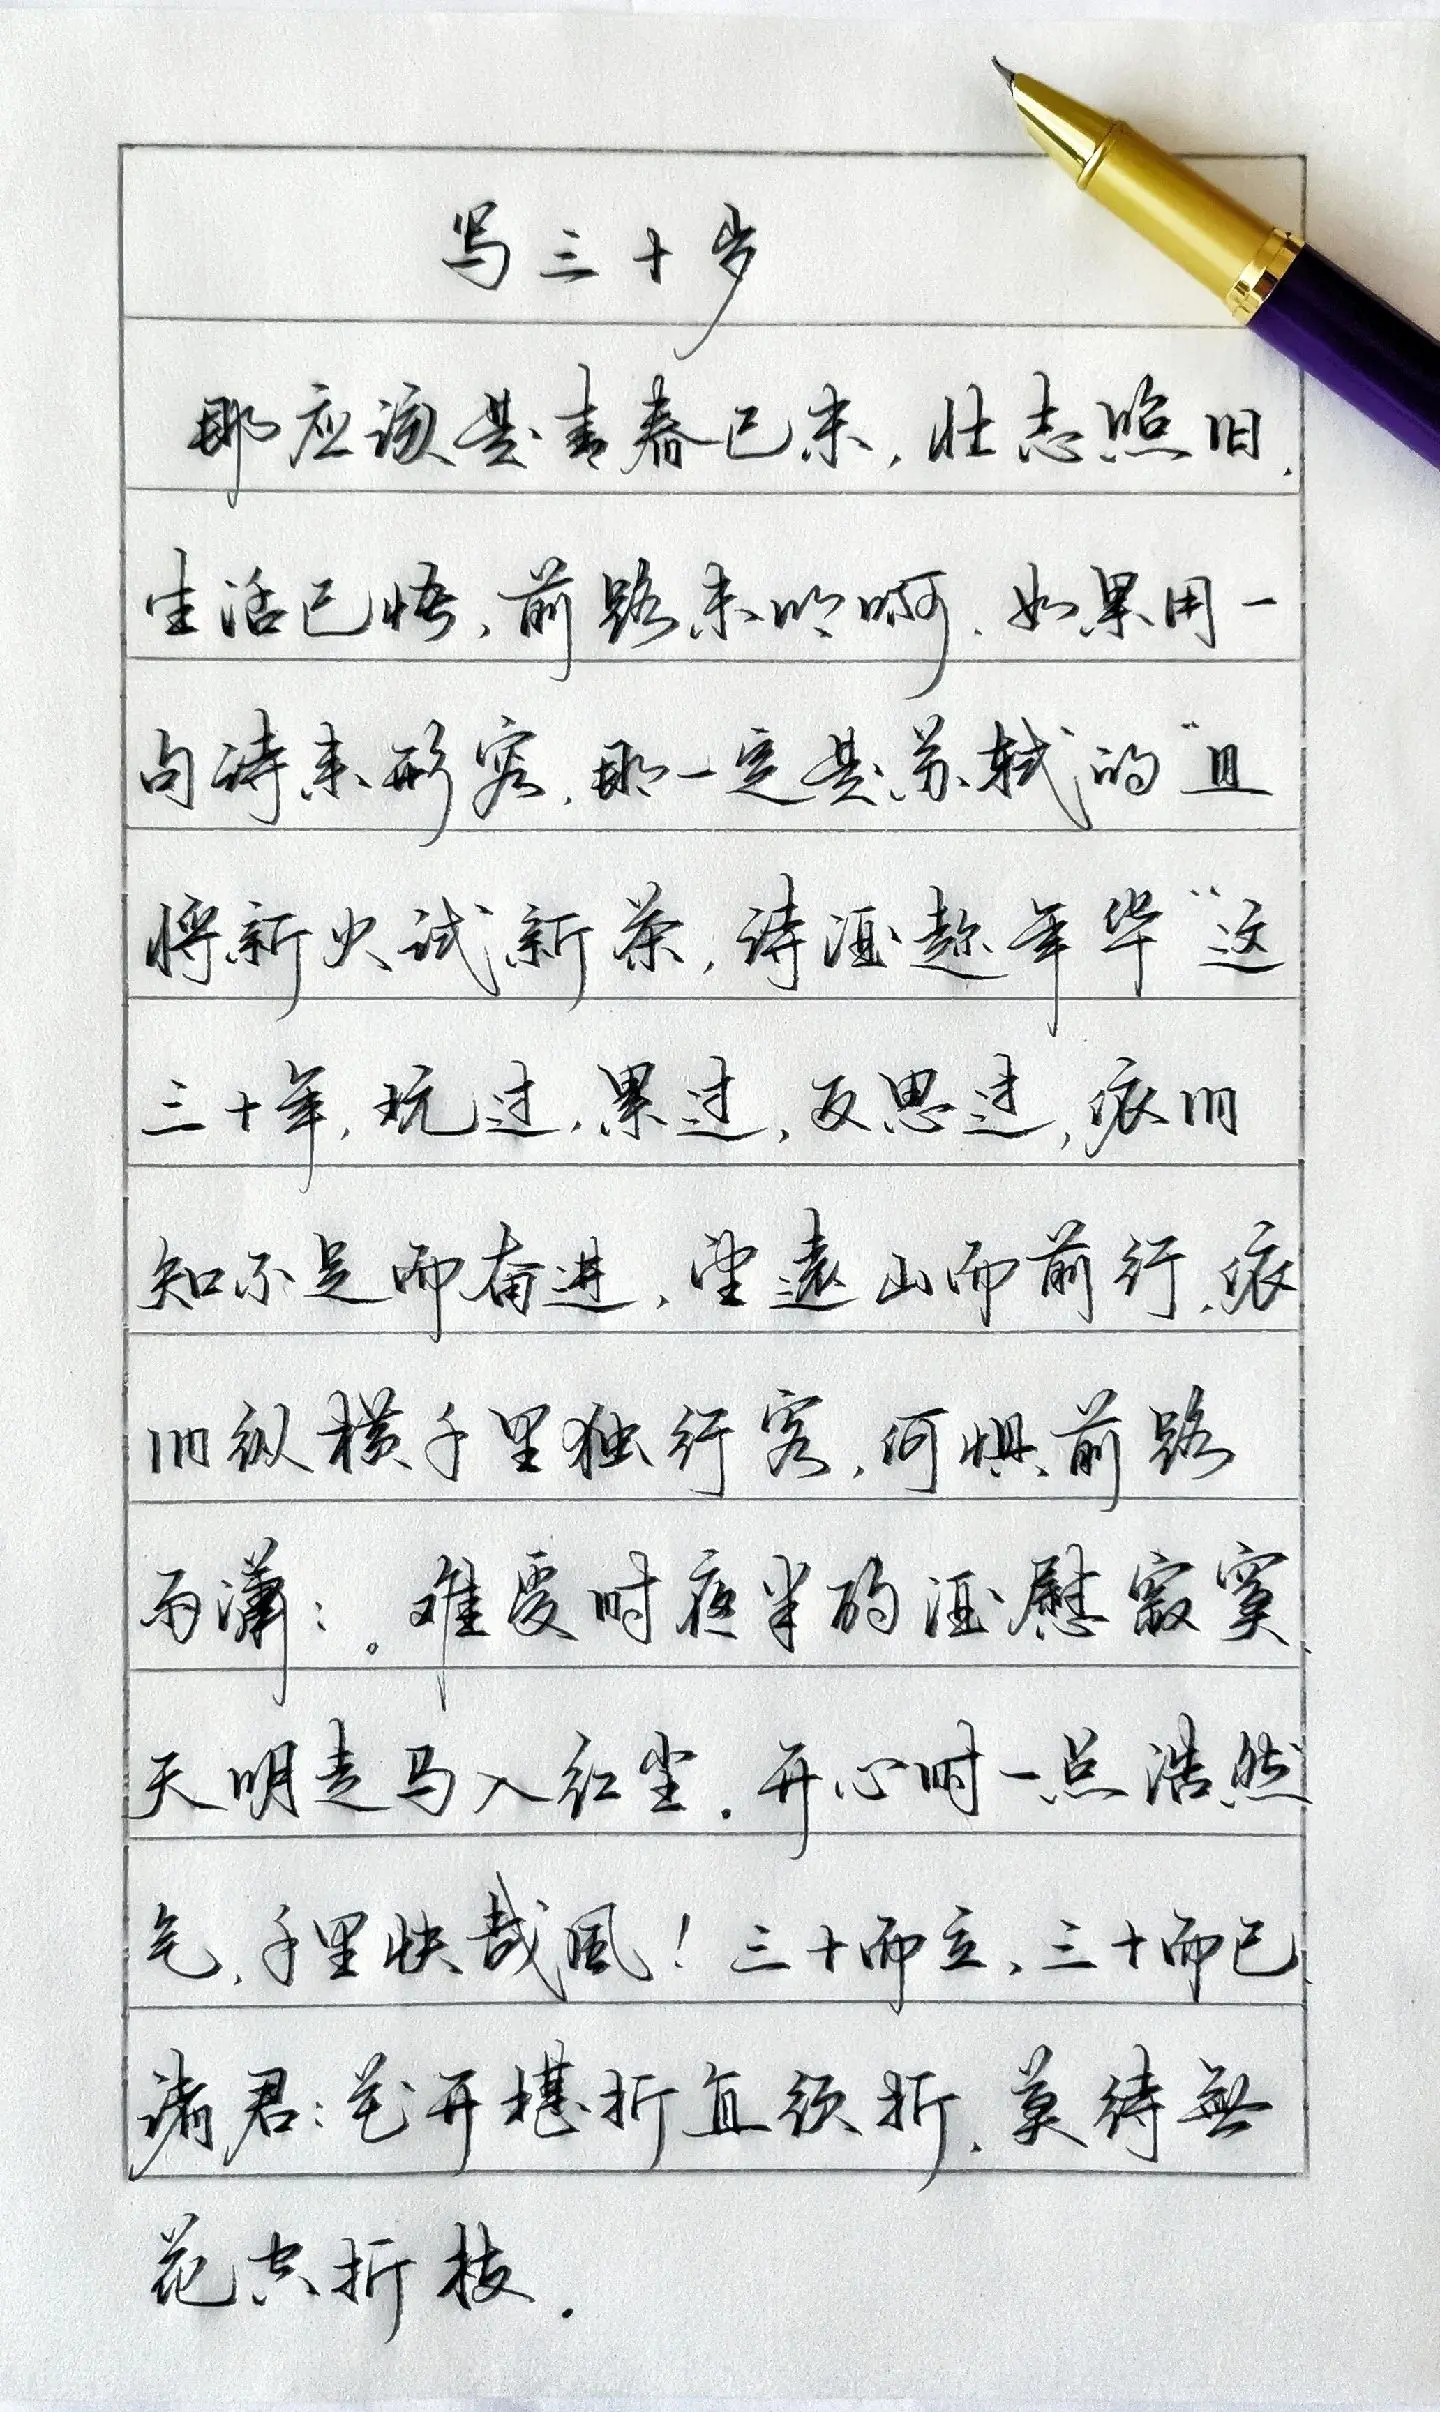 写三十岁
那应该是青春已末,壮志照旧.
生活已悟,前路未吟啊.如果用一
句诗来形容,那一定是苏轼的“且
将新火试新茶,诗酒趁年华”这
三十年,玩过,累过,反思过,依旧
知不足而奋进,望远山而前行,依
旧纵横千里独行客,何惧前路
雨潇:。难受时夜半的酒慰寂寞
天明走马入红尘.开心时一点浩然
气,千里快哉风!三十而立,三十而已
诸君:花开堪折直须折,莫待无
花空折枝.